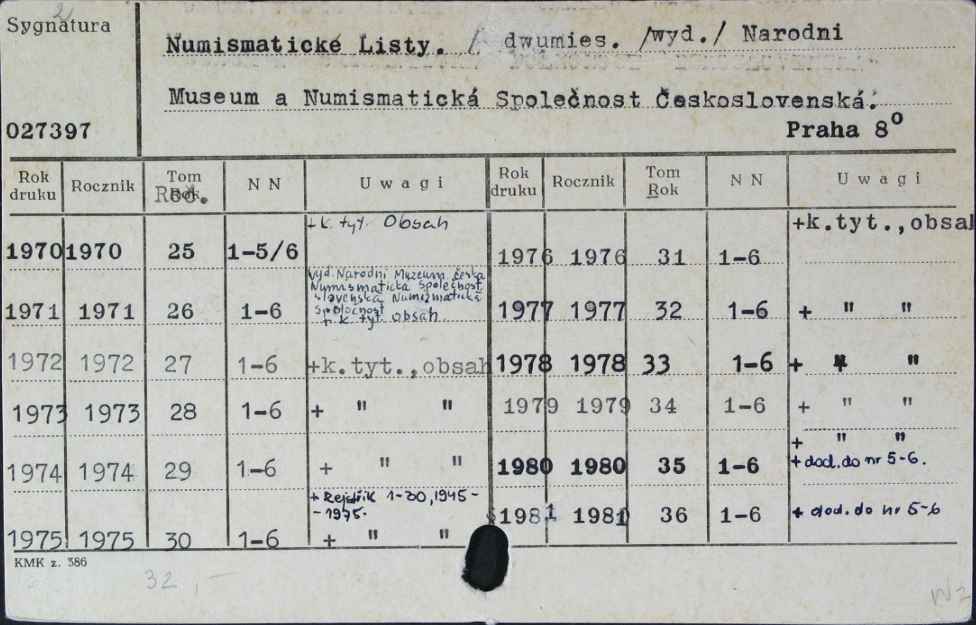 Sygnatura
Numismatické Listy. / dwumies. /wyd./ Narodni
Museum a Numismatická Společnost Československá.
027397
Praha 8°
Rok druku Rocznik Tom Roč. N N Uwagi Rok druku Rocznik Tom Rok N N Uwagi
+ k. tyt. Obsah
+k.tyt.,obsah
1970 1970 25 1-5/6
1976 1976 31 1-6
wyd. Narodni Muzeum česka
Numismaticka společnost
slovenská Numizmatická
Spoločnost
+ k. tyt. obsah.
1971 1971 26 1-6
1977 1977 32 1-6 + " "
1972 1972 27 1-6 +k.tyt.,obsah
1978 1978 33 1-6 + " "
1973 1973 28 1-6 + " "
1979 1979 34 1-6 + " "
1974 1974 29 1-6 + " "
+ " "
1980 1980 35 1-6 + dod. do nr 5-6.
+ Rejstřik 1-30, 1945-
-1975.
1975 1975 30 1-6 + " "
1981 1981 36 1-6 + dod. do nr 5-6
KMK z. 386
32,-